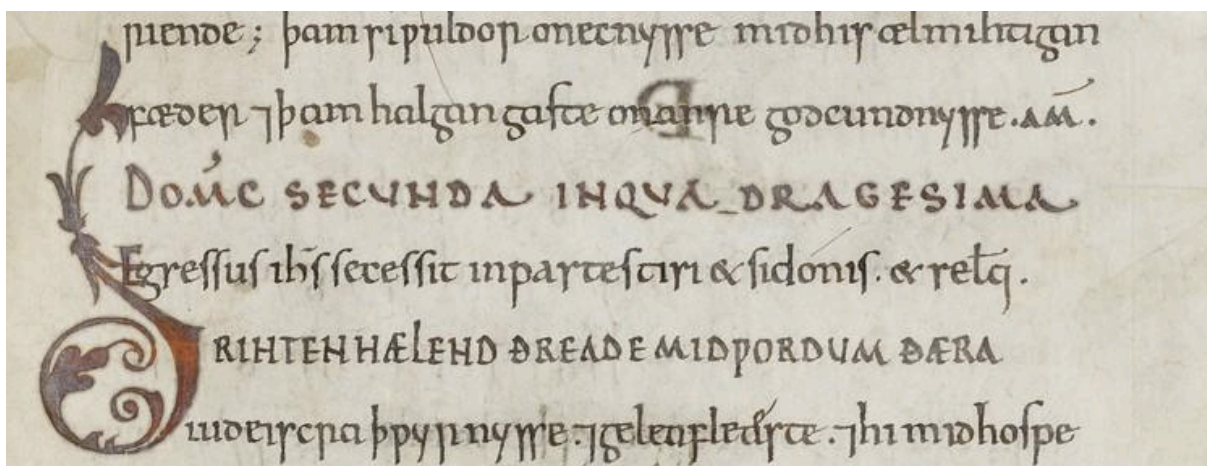 siende; þam si ƿuldor on ecnysse mid his ælmihtigan
fæder ⁊ þam halgan gaste on anre godcundnysse. AM̄.
DOM̄C SECUNDA IN QUADRAGESIMA
Egressus ih̄s secessit in partes tiri & sidonis. & relq̄.
DRIHTEN HÆLEND ÐREADE MID ǷORDUM ÐÆRA
iudeiscra þƿyrnysse. ⁊ geleafleaste. ⁊ hi mid hospe